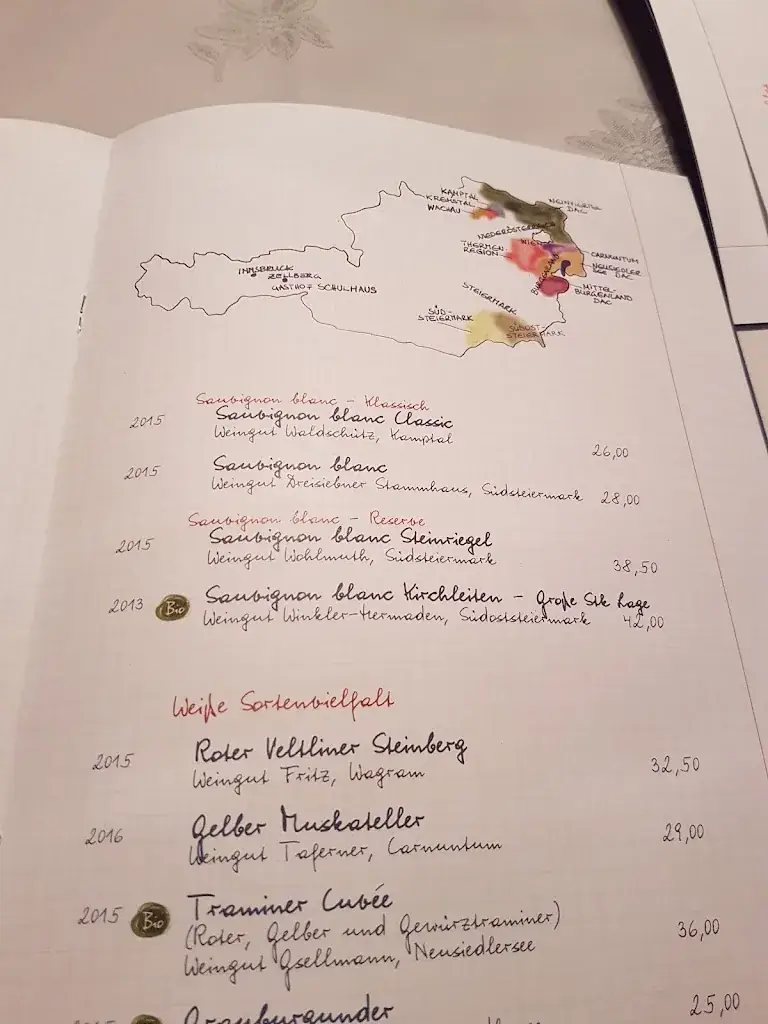 KAMPTAL
KREMSTAL
WACHAU
WEINVIERTEL
DAC
NIEDERÖSTERREICH
WIEN
THERMEN-
REGION
CARNUNTUM
NEUSIEDLER
SEE DAC
BURGENLAND
MITTEL-
BURGENLAND
DAC
INNSBRUCK
ZELLBERG
GASTHOF SCHULHAUS
STEIERMARK
SÜD-
STEIERMARK
SÜDOST-
STEIERMARK
Sauvignon blanc - Klassisch
2015 Sauvignon blanc Classic
Weingut Waldschütz, Kamptal 26,00
2015 Sauvignon blanc
Weingut Dreisiebner Stammhaus, Südsteiermark 28,00
Sauvignon blanc - Reserve
2015 Sauvignon blanc Steinriegel
Weingut Wohlmuth, Südsteiermark 38,50
2013 Bio Sauvignon blanc Kirchleiten - Große Stk Lage
Weingut Winkler-Hermaden, Südoststeiermark 42,00
Weiße Sortenvielfalt
2015 Roter Veltliner Steinberg
Weingut Fritz, Wagram 32,50
2016 Gelber Muskateller
Weingut Taferner, Carnuntum 29,00
2015 Bio Traminer Cuvée
(Roter, Gelber und Gewürztraminer) 36,00
Weingut Gsellmann, Neusiedlersee
2015 Grauburgunder 25,00